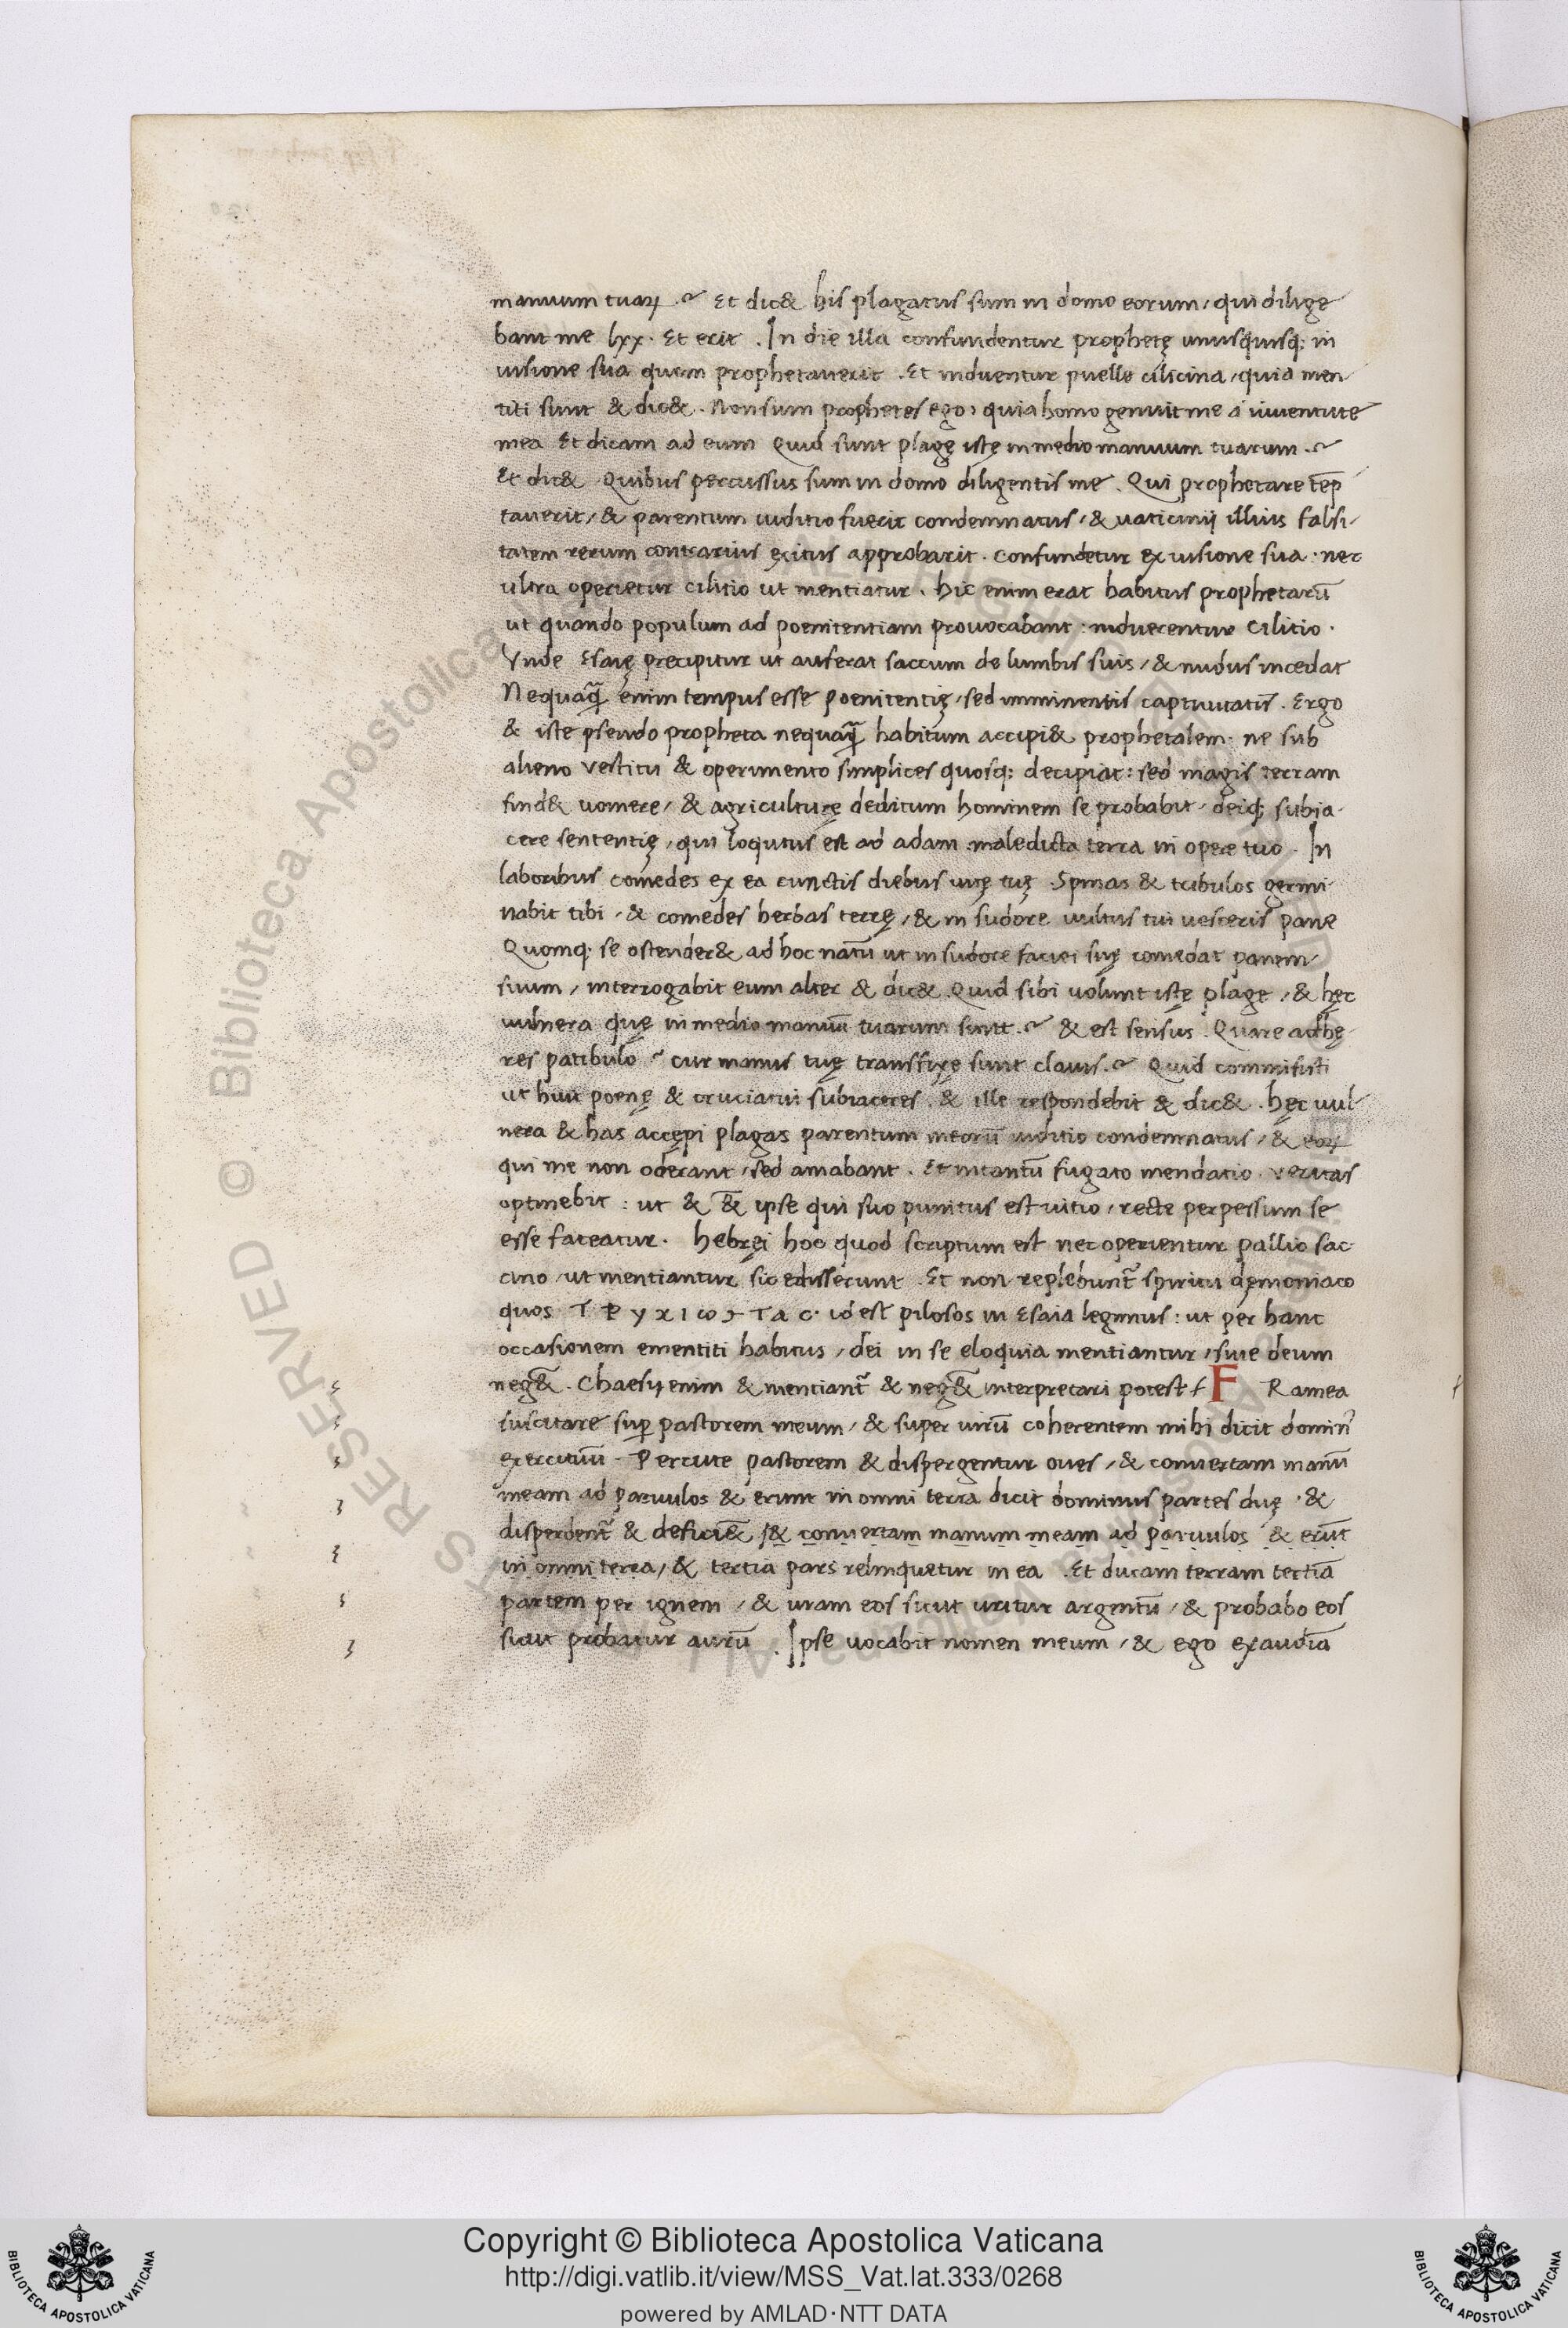 manuum tuaꝝ .? Et dic& his plagatus sum in domo eorum, qui dilige
bant me lxx. Et erit . In die illa confundentur prophetę unusquisq; in
uisione sua quam prophetauerit . Et induentur puelle cilicina, quia men
titi sunt & dic& . Non sum prophetes ego, quia homo genuit me a iuuentute
mea Et dicam ad eum Quid sunt plagę istę in medio manuum tuarum .?
Et dic& Quibus percussus sum in domo diligentis me . Qui prophetare tēp
tauerit, & parentum iuditio fuerit condemnatus, & uaticinij illius falsi-
tatem rerum contrarius exitus approbarit . confundetur ex uisione sua . nec
ultra operietur cilitio ut mentiatur . hic enim erat habitus prophetarū
ut quando populum ad poenitentiam prouocabant : induerentur cilitio .
Vnde Esaię precipitur ut auferat saccum de lumbis suis, & nudus incedat
Nequaꝗ̃ enim tempus esse poenitentię, sed imminentis captiuitatis . Ergo
& iste pseudo propheta nequaꝗ̃ habitum accipi& prophetalem . ne sub
alieno vestitu & operimento simplices quosq; decipiat : sed magis terram
find& uomere, & agriculturę deditum hominem se probabit, deiq; subia-
cere sententię, qui loqutus est ad adam maledicta terra in opere tuo . In
laboribus comedes ex ea cunctis diebus uitę tuę . Spinas & tribulos germi-
nabit tibi, & comedes herbas terrę, & in sudore uultus tui uesceris pane
Quomq; se ostender& ad hoc natū ut in sudore faciei suę comedat panem
suum, interrogabit eum alter & dic& . Quid sibi uolunt istę plage, & hęc
uulnera quę in medio manuū tuarum suntt .? & est sensus . Quare adhę-
res patibulo ? cur manus tuę transfixę sunt clauis .? Quid commisisti
ut huic poenę & cruciatui subiaceres . & ille respondebit & dic& . hęc uul-
nera & has accępi plagas parentum meorū iuditio condemnatus, & eoꝝ
qui me non oderant, sed amabant . Et intantū fugato mendatio . veritas
optinebit : ut & & ipse qui suo punitus est uitio, recte perpessum se
esse fateatur . hebręi hoc quod scriptum est nec operientur pallio sac-
cino, ut mentiantur sic edisserunt . Et non replebunt᷑ spiritu dęmoniaco
quos Τ Ρ y χ ι ω Ͻ Τ a c . id est pilosos in Esaia legimus : ut per hanc
occasionem ementiti habitus, dei in se eloquia mentiantur, siue deum
neg&̄ . Chaesy enim & mentiant᷑ & neg&̄ interpretari potest F Ramea
suscitare suꝑ pastorem meum, & super uirū coherentem mihi dicit domin᷒
exercituū . Percute pastorem & dispergentur oues, & conuertam manū
meam ad paruulos & erunt in omni terra dicit dominus partes duę . &
disperdent᷑ & defici&̄ & conuertam manum meam ad paruulos & erūt
in omni terra, & tertia pars relinquetur in ea . Et ducam terram tertiā
partem per ignem, & uram eos sicut uritur argentū, & probabo eos
sicut probatur aurū . Ipse uocabit nomen meum, & ego exaudiā
RESERVED © Biblioteca Apostolica Vaticana
Copyright © Biblioteca Apostolica Vaticana
http://digi.vatlib.it/view/MSS_Vat.lat.333/0268
powered by AMLAD·NTT DATA
BIBLIOTECA APOSTOLICA VATICANA
BIBLIOTECA APOSTOLICA VATICANA